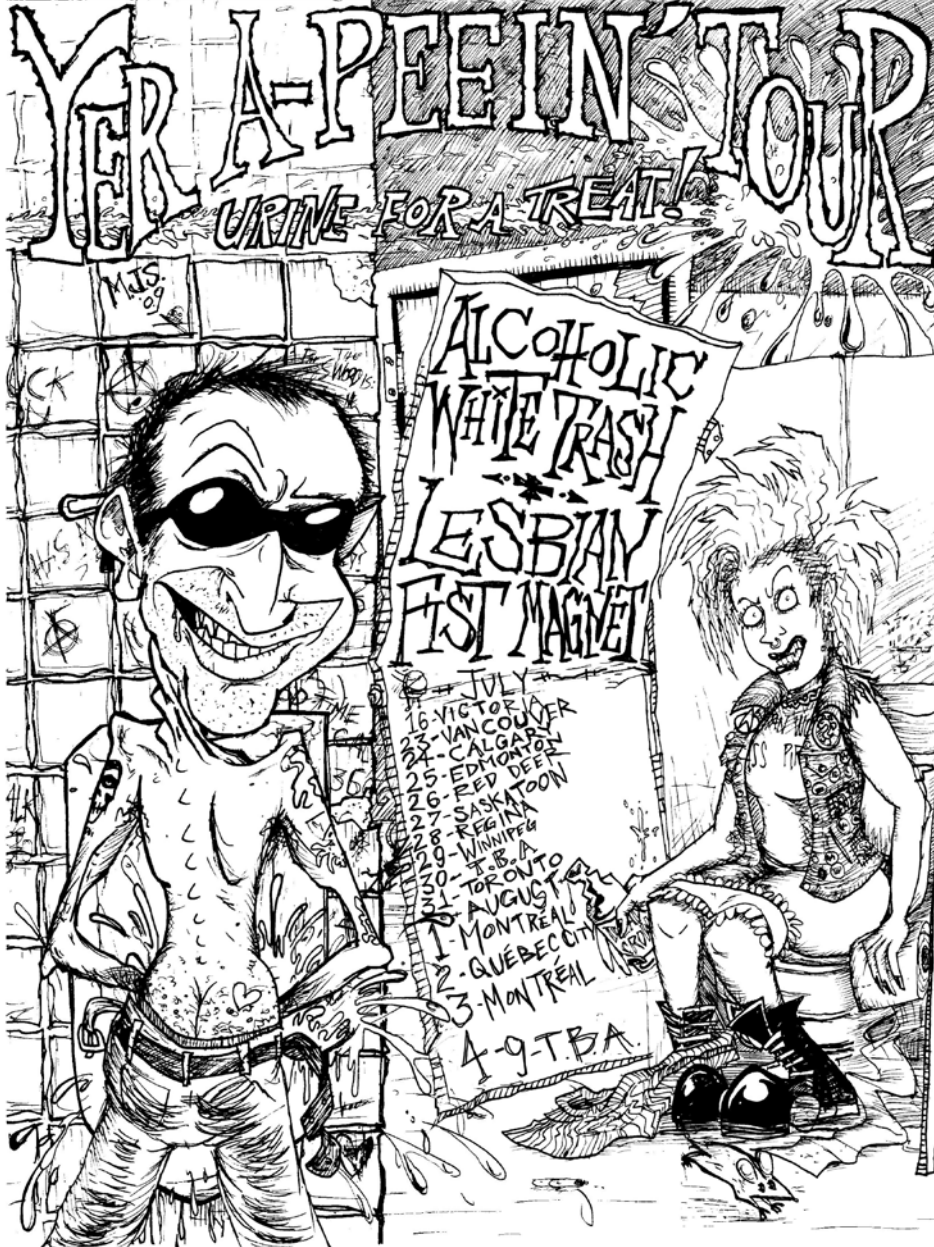 YER A-PEEIN' TOUR
URINE FOR A TREAT!
MJS.
09
ALCOHOLIC
WHITE TRASH
LESBIAN
FIST MAGNET
JULY
16-VICTORIA
23-VANCOUVER
24-CALGARY
25-EDMONTON
26-RED DEER
27-SASKATOON
28-REGINA
29-WINNIPEG
30-T.B.A
31-TORONTO
AUGUST
1-MONTRÉAL
2-QUÉBEC CITY
3-MONTRÉAL
4-9-T.B.A.